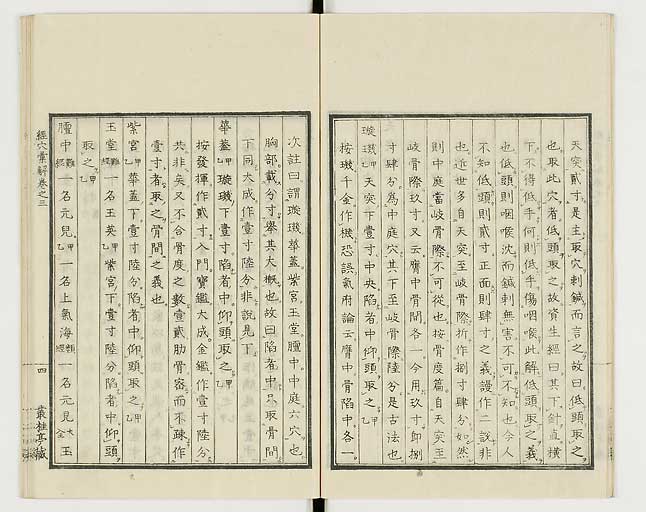 天突貳寸是主取穴刺鍼而言之故曰低頭取之
也取此穴者低頭取之故資生經曰其下針直横
下不得低手何則低手傷咽喉此解低頭取之義
也低頭則咽喉沈而鍼刺無害不可不知也今人
不知低頭則貳寸正面則肆寸之義謾作二說非
也近世多自天突至岐骨際折作捌寸肆分如然
則中庭當岐骨際不可從也按骨度篇自天突至
岐骨際玖寸又云膺中骨間各一今用玖寸卽捌
寸肆分爲中庭穴其下至岐骨際陸分是古法也
璇璣甲乙天突下壹寸中央陷者中仰頭取之甲乙
按璣千金作機恐誤氣府論云膺中骨陷中各一
次註曰謂璇璣華蓋紫宮玉堂膻中中庭六穴也
胸部載分寸舉其大概也故曰陷者中只取骨間
下同大成作壹寸陸分非說見下
華蓋甲乙璇璣下壹寸陷者中仰頭取之甲乙
按發揮作貳寸入門寶鑑大成金鑑作壹寸陸分
共非矣又不合骨度之數壹貳肋骨容而不疎作
壹寸者取之骨間之義也
紫宮甲乙華蓋下壹寸陸分陷者中仰頭取之甲乙
玉堂難經一名玉英甲乙紫宮下壹寸陸分陷者中仰頭
取之甲乙
膻中難經一名元兒甲乙一名上氣海類經一名元見大全玉
經穴彙解卷之三
四
叢桂亭藏